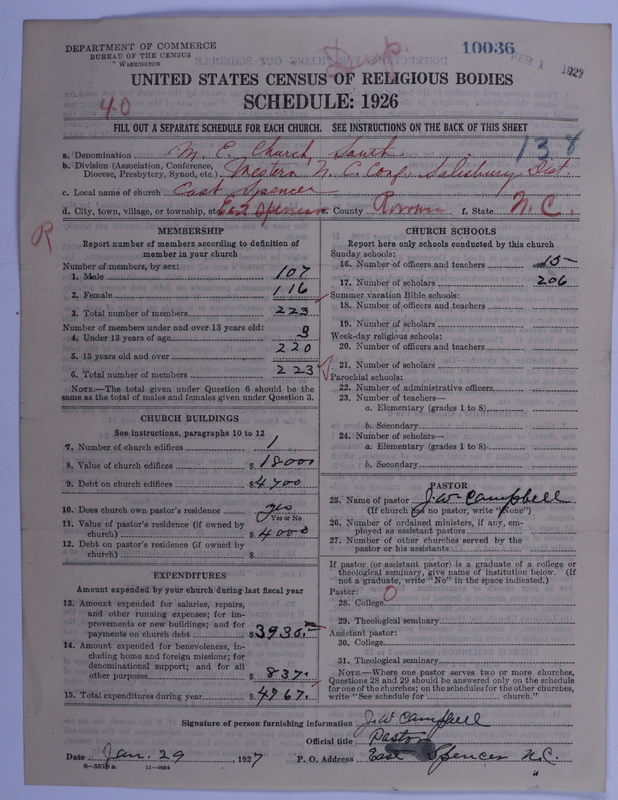 DEPARTMENT OF COMMERCE
BUREAU OF THE CENSUS
WASHINGTON
10036
FEB 1 1927
UNITED STATES CENSUS OF RELIGIOUS BODIES
SCHEDULE: 1926
40
FILL OUT A SEPARATE SCHEDULE FOR EACH CHURCH. SEE INSTRUCTIONS ON THE BACK OF THIS SHEET
138
a. Denomination M. E. Church, South.
b. Division (Association, Conference, Diocese, Presbytery, Synod, etc.) Western N. C. Conf. Salisbury Dist.
c. Local name of church East Spencer
d. City, town, village, or township, etc. East Spencer e. County Rowan f. State N. C.
R
MEMBERSHIP
Report number of members according to definition of
member in your church
Number of members, by sex:
1. Male 107
2. Female 116
3. Total number of members 223
Number of members under and over 13 years old:
4. Under 13 years of age 3
5. 13 years old and over 220
6. Total number of members 223
NOTE.—The total given under Question 6 should be the
same as the total of males and females given under Question 3.
CHURCH BUILDINGS
See instructions, paragraphs 10 to 12
7. Number of church edifices 1
8. Value of church edifices $18000
9. Debt on church edifices $4700
10. Does church own pastor's residence yes
Yes or No
11. Value of pastor's residence (if owned by
church) $4000
12. Debt on pastor's residence (if owned by
church) $
EXPENDITURES
Amount expended by your church during last fiscal year
13. Amount expended for salaries, repairs,
and other running expenses; for im-
provements or new buildings; and for
payments on church debt $3930.
14. Amount expended for benevolences, in-
cluding home and foreign missions; for
denominational support; and for all
other purposes $837.
15. Total expenditures during year $4767.
CHURCH SCHOOLS
Report here only schools conducted by this church
Sunday schools:
16. Number of officers and teachers 15
17. Number of scholars 206
Summer vacation Bible schools:
18. Number of officers and teachers
19. Number of scholars
Week-day religious schools:
20. Number of officers and teachers
21. Number of scholars
Parochial schools:
22. Number of administrative officers
23. Number of teachers—
a. Elementary (grades 1 to 8)
b. Secondary
24. Number of scholars—
a. Elementary (grades 1 to 8)
b. Secondary
PASTOR
25. Name of pastor J. W. Campbell
(If church has no pastor, write "None")
26. Number of ordained ministers, if any, em-
ployed as assistant pastors
27. Number of other churches served by the
pastor or his assistants
If pastor (or assistant pastor) is a graduate of a college or
theological seminary, give name of institution below. (If
not a graduate, write "No" in the space indicated.)
Pastor:
28. College 0
29. Theological seminary
Assistant pastor:
30. College
31. Theological seminary
NOTE.—Where one pastor serves two or more churches,
Questions 28 and 29 should be answered only on the schedule
for one of the churches; on the schedules for the other churches,
write "See schedule for church."
Signature of person furnishing information J. W. Campbell
Official title Pastor
Date Jan. 29, 1927 P. O. Address East Spencer N.C.
8—5518a 11—9064